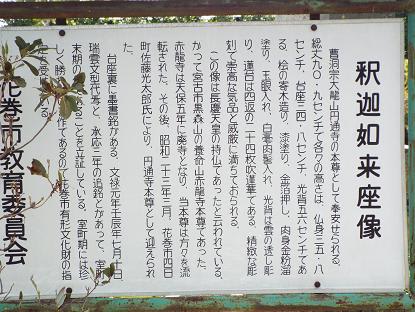 釈迦如来座像
曹洞宗大龍山円通寺の本尊として奉安せられる。
総丈九〇・九センチで各々の高さは、仏身三五・八
センチ、台座三四・八センチ、光背五六センチであ
る。桧の寄木造り、漆塗り、金箔押し、肉身金粉溜
塗り、玉眼入れ、白毫肉髻入れ、光背は雲の透し彫
り、蓮台は四返の二十四枚吹蓮華である。精緻な彫
刻で崇高な気品と威厳に満ちておられる。
この像は長慶天皇の持仏であったと云われている。
かつて宮古市黒森山の養命山赤龍寺本尊であった。
赤龍寺は天保五年に廃寺となり、当本尊は方々を流
転された。その後、昭和二十三年三月、花巻市四日
町佐藤光太郎氏により、円通寺本尊として迎えられ
た。
台座裏に墨書銘がある。文禄元年壬辰年七月
瑞雲文型代寿と、承応三年の追銘とがあって、室町
末期の であることを立証している。室町期には珍
しく勝 作であるので花巻市有形文化財の指
定を受
花巻市教育委員会